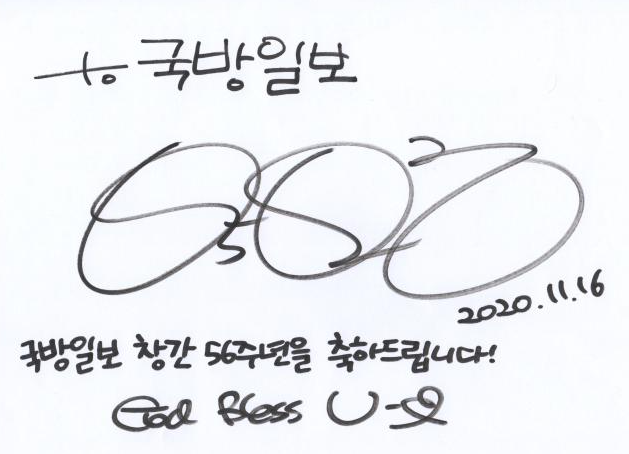 to 국방일보
2020.11.16
국방일보 창간 56주년을 축하드립니다!
God Bless U